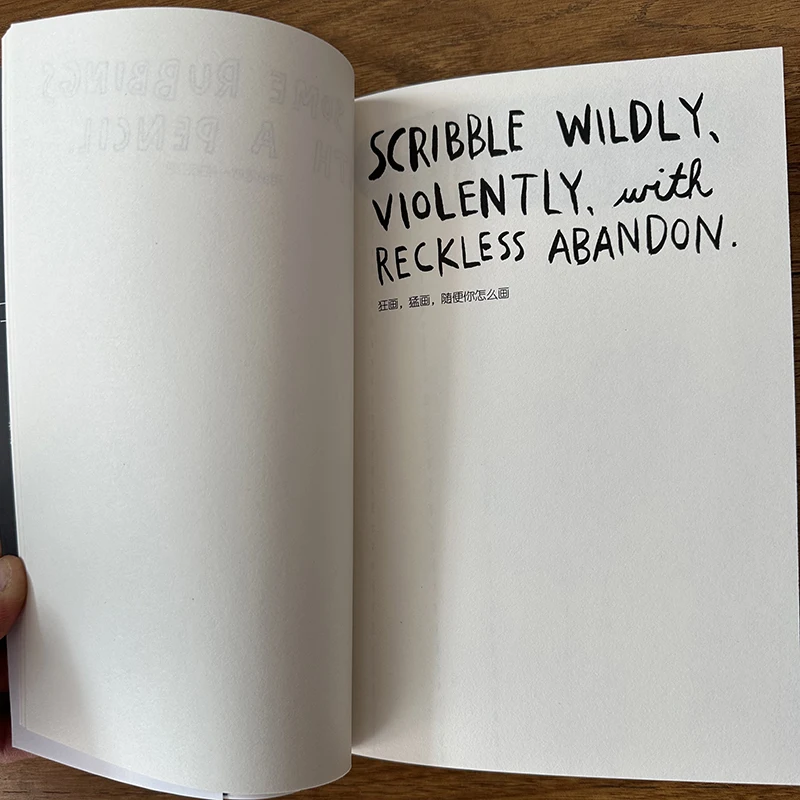 OME RUBBINGS
TH A PENCIL.
SCRIBBLE WILDLY,
VIOLENTLY, with
RECKLESS ABANDON.
狂画，猛画，随便你怎么画